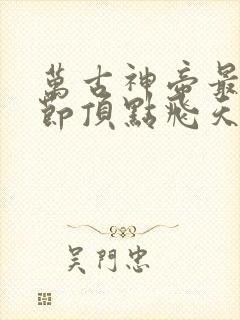 萬古神帝最
節頂點飛天
吳門忠